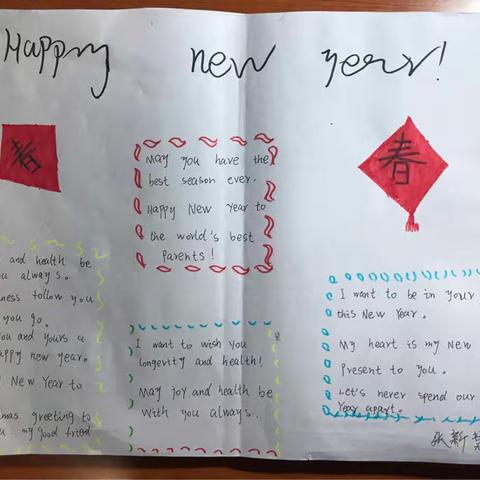 Happy new year!
春
春
May you have the
best season ever.
Happy New Year to
the world's best
Parents!
and health be
always.
follow you
you go.
you and yours a
happy new year.
New Year to
greeting to
my good friend
I want to wish you
longevity and health!
May joy and health be
with you always.
I want to be in your
this New Year.
My heart is my New
Present to you.
Let's never spend our
Year apart.
张新